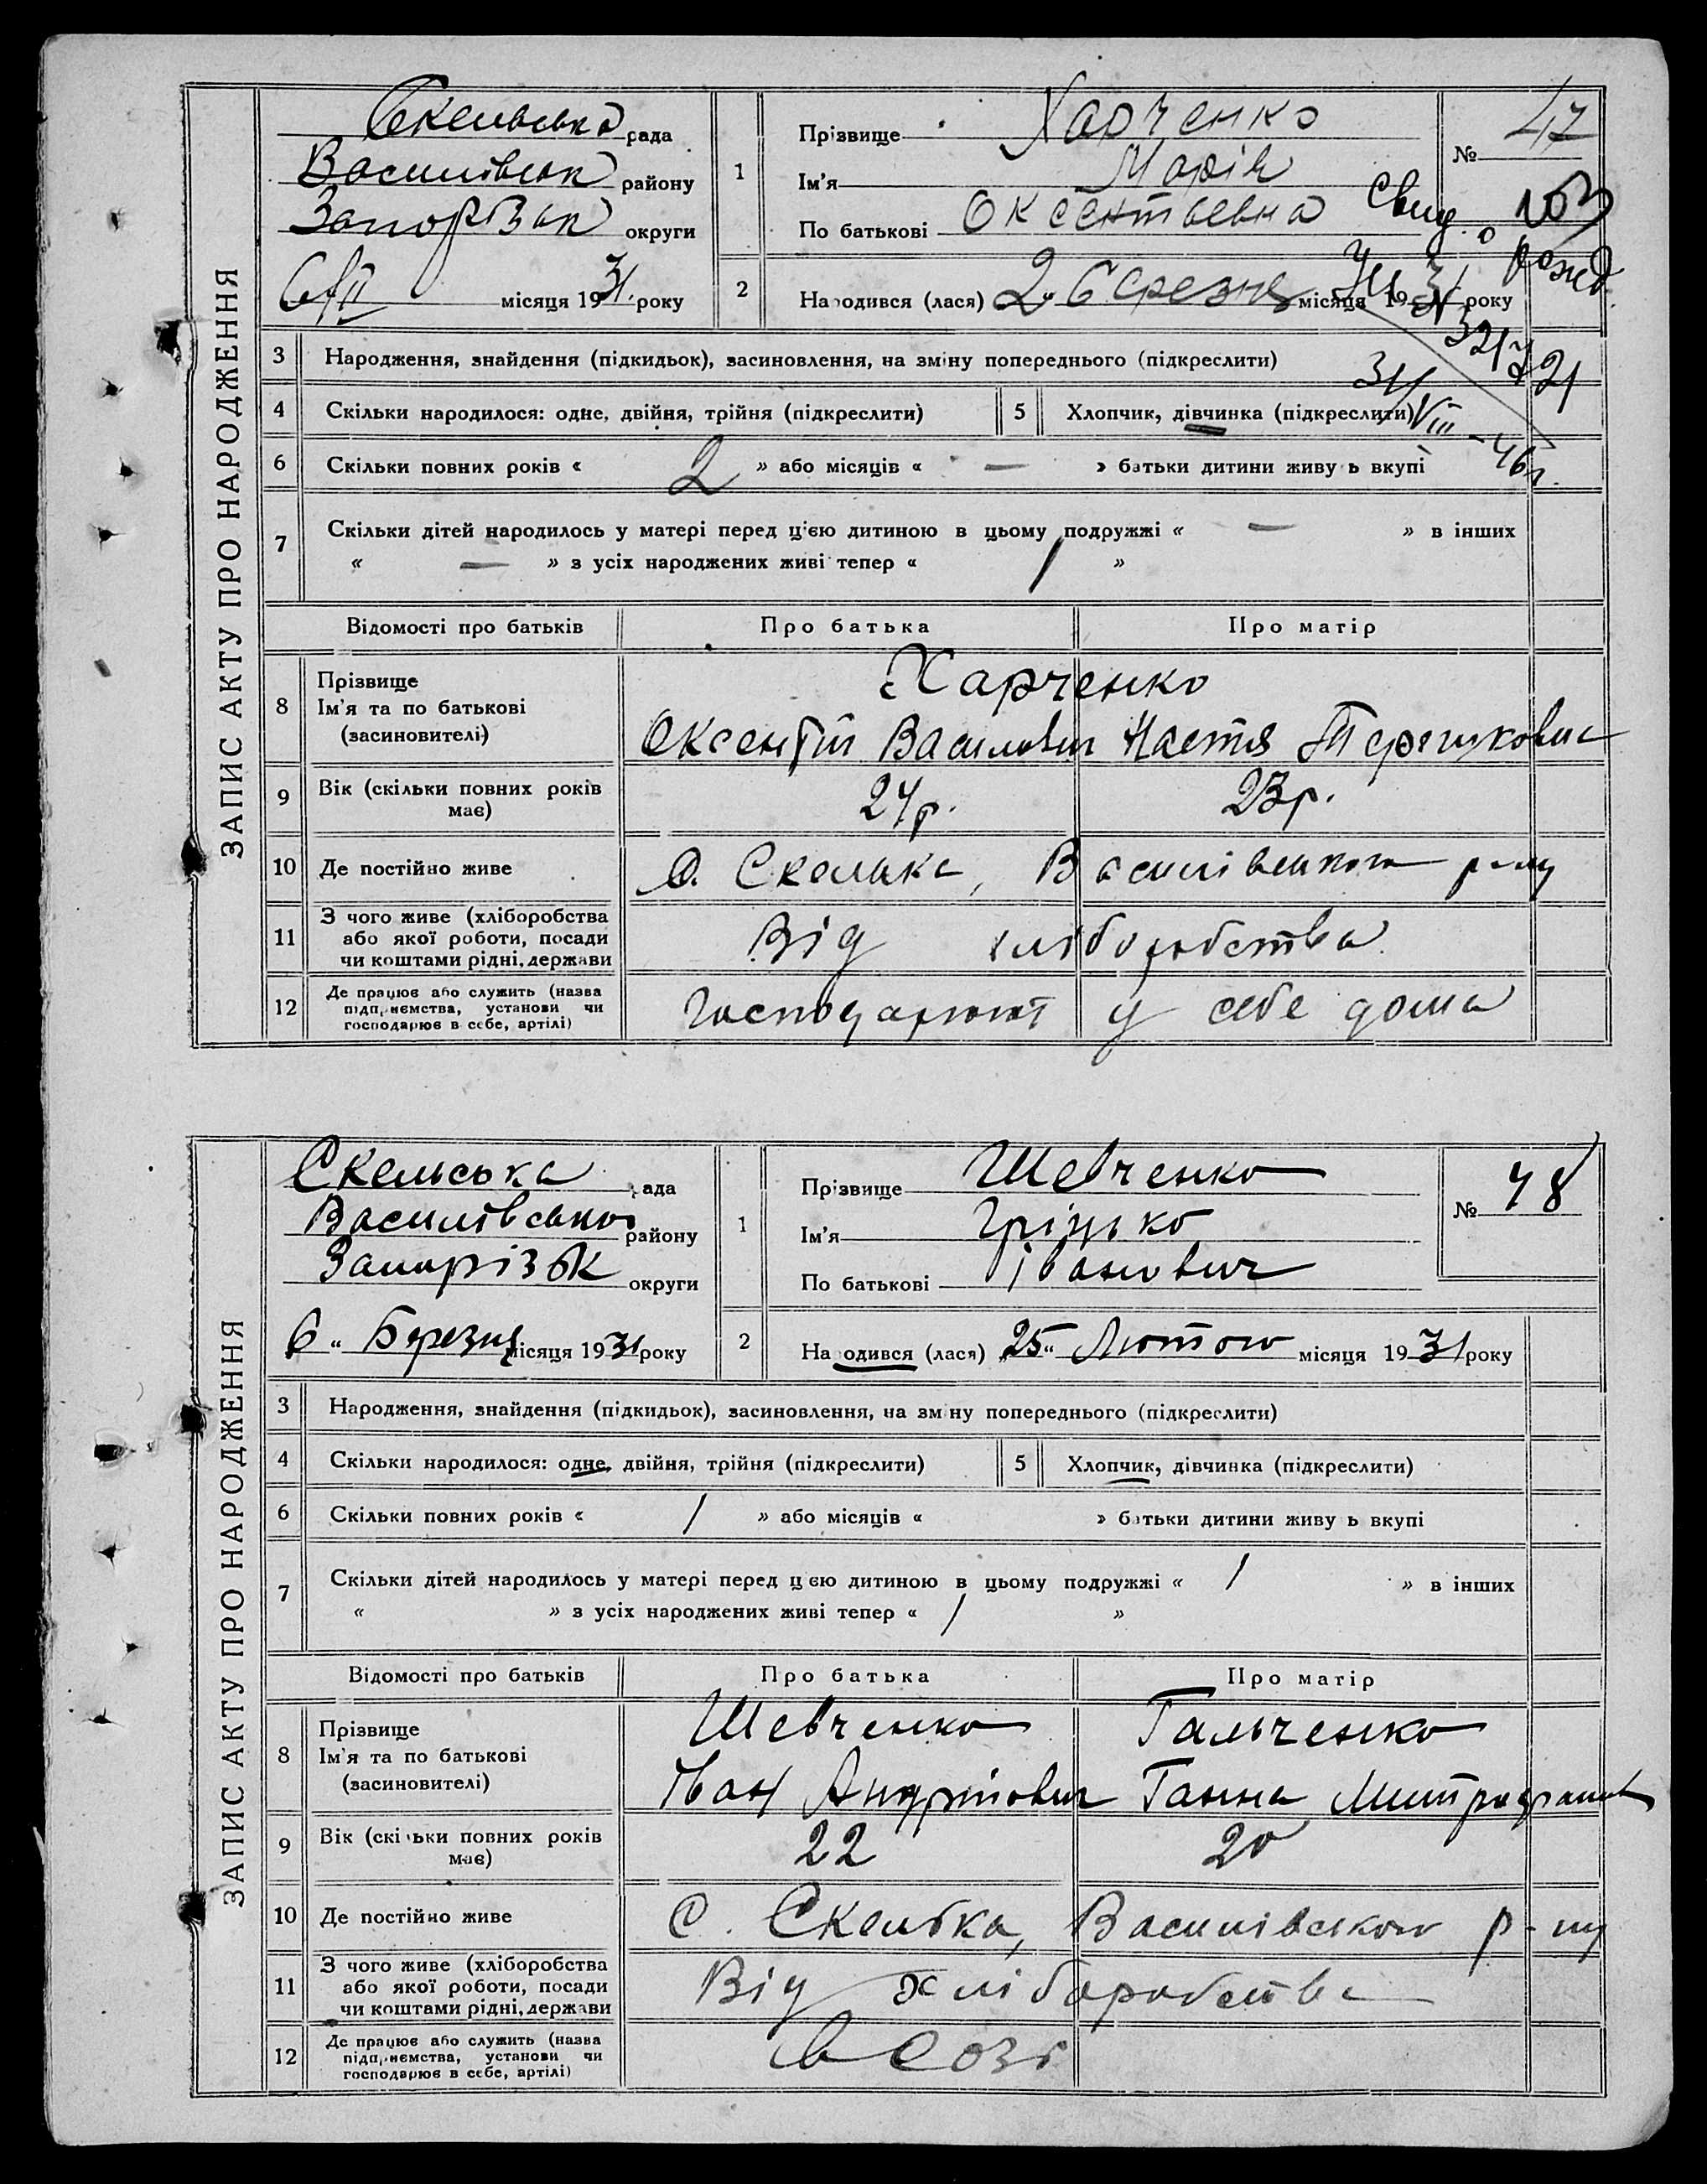 ЗАПИС АКТУ ПРО НАРОДЖЕННЯ
Скельська рада
Василівськ району
Запорізьк округи
6/III місяця 1931 року
1
Прізвище Харченко
Ім'я Марія
По батькові Оксентьевна
№ 47
Свид. о рожд.
2
Народився (лася) 2 березня місяця 1931 року
31/VIII-46г.
3 Народження, знайдення (підкидьок), засиновлення, на зміну попереднього (підкреслити)
4 Скільки народилося: одне, двійня, трійня (підкреслити)
5 Хлопчик, дівчинка (підкреслити)
6 Скільки повних років « 2 » або місяців « — » батьки дитини живуть вкупі
7 Скільки дітей народилось у матері перед цією дитиною в цьому подружжі « — » в інших
« — » з усіх народжених живі тепер « 1 »
Відомості про батьків Про батька Про матір
8 Прізвище
Ім'я та по батькові
(засиновителі)
Харченко
Оксентій Василович Настя
9 Вік (скільки повних років має)
24р. 23р.
10 Де постійно живе
с. Скелька, Василівського р-ну
11 З чого живе (хліборобства
або якої роботи, посади
чи коштами рідні, держави
Від хліборобства
12 Де працює або служить (назва
підприємства, установи чи
господарює в себе, артілі)
Господарюют у себе дома
ЗАПИС АКТУ ПРО НАРОДЖЕННЯ
Скельська рада
Василівського району
Запорізьк округи
6" Березня місяця 1931 року
1
Прізвище Шевченко
Ім'я Гріцько
По батькові Іванович
№ 48
2
Народився (лася) "25" Лютого місяця 1931 року
3 Народження, знайдення (підкидьок), засиновлення, на зміну попереднього (підкреслити)
4 Скільки народилося: одне, двійня, трійня (підкреслити)
5 Хлопчик, дівчинка (підкреслити)
6 Скільки повних років « 1 » або місяців « » батьки дитини живуть вкупі
7 Скільки дітей народилось у матері перед цією дитиною в цьому подружжі « 1 » в інших
« » з усіх народжених живі тепер « 1 »
Відомості про батьків Про батька Про матір
8 Прізвище
Ім'я та по батькові
(засиновителі)
Шевченко Гальченко
Іван Андрійович Ганна Митрофанов
9 Вік (скільки повних років має)
22 20
10 Де постійно живе
с. Скелька, Василівського р-ну
11 З чого живе (хліборобства
або якої роботи, посади
чи коштами рідні, держави
Від хліборобства
12 Де працює або служить (назва
підприємства, установи чи
господарює в себе, артілі)
в созі